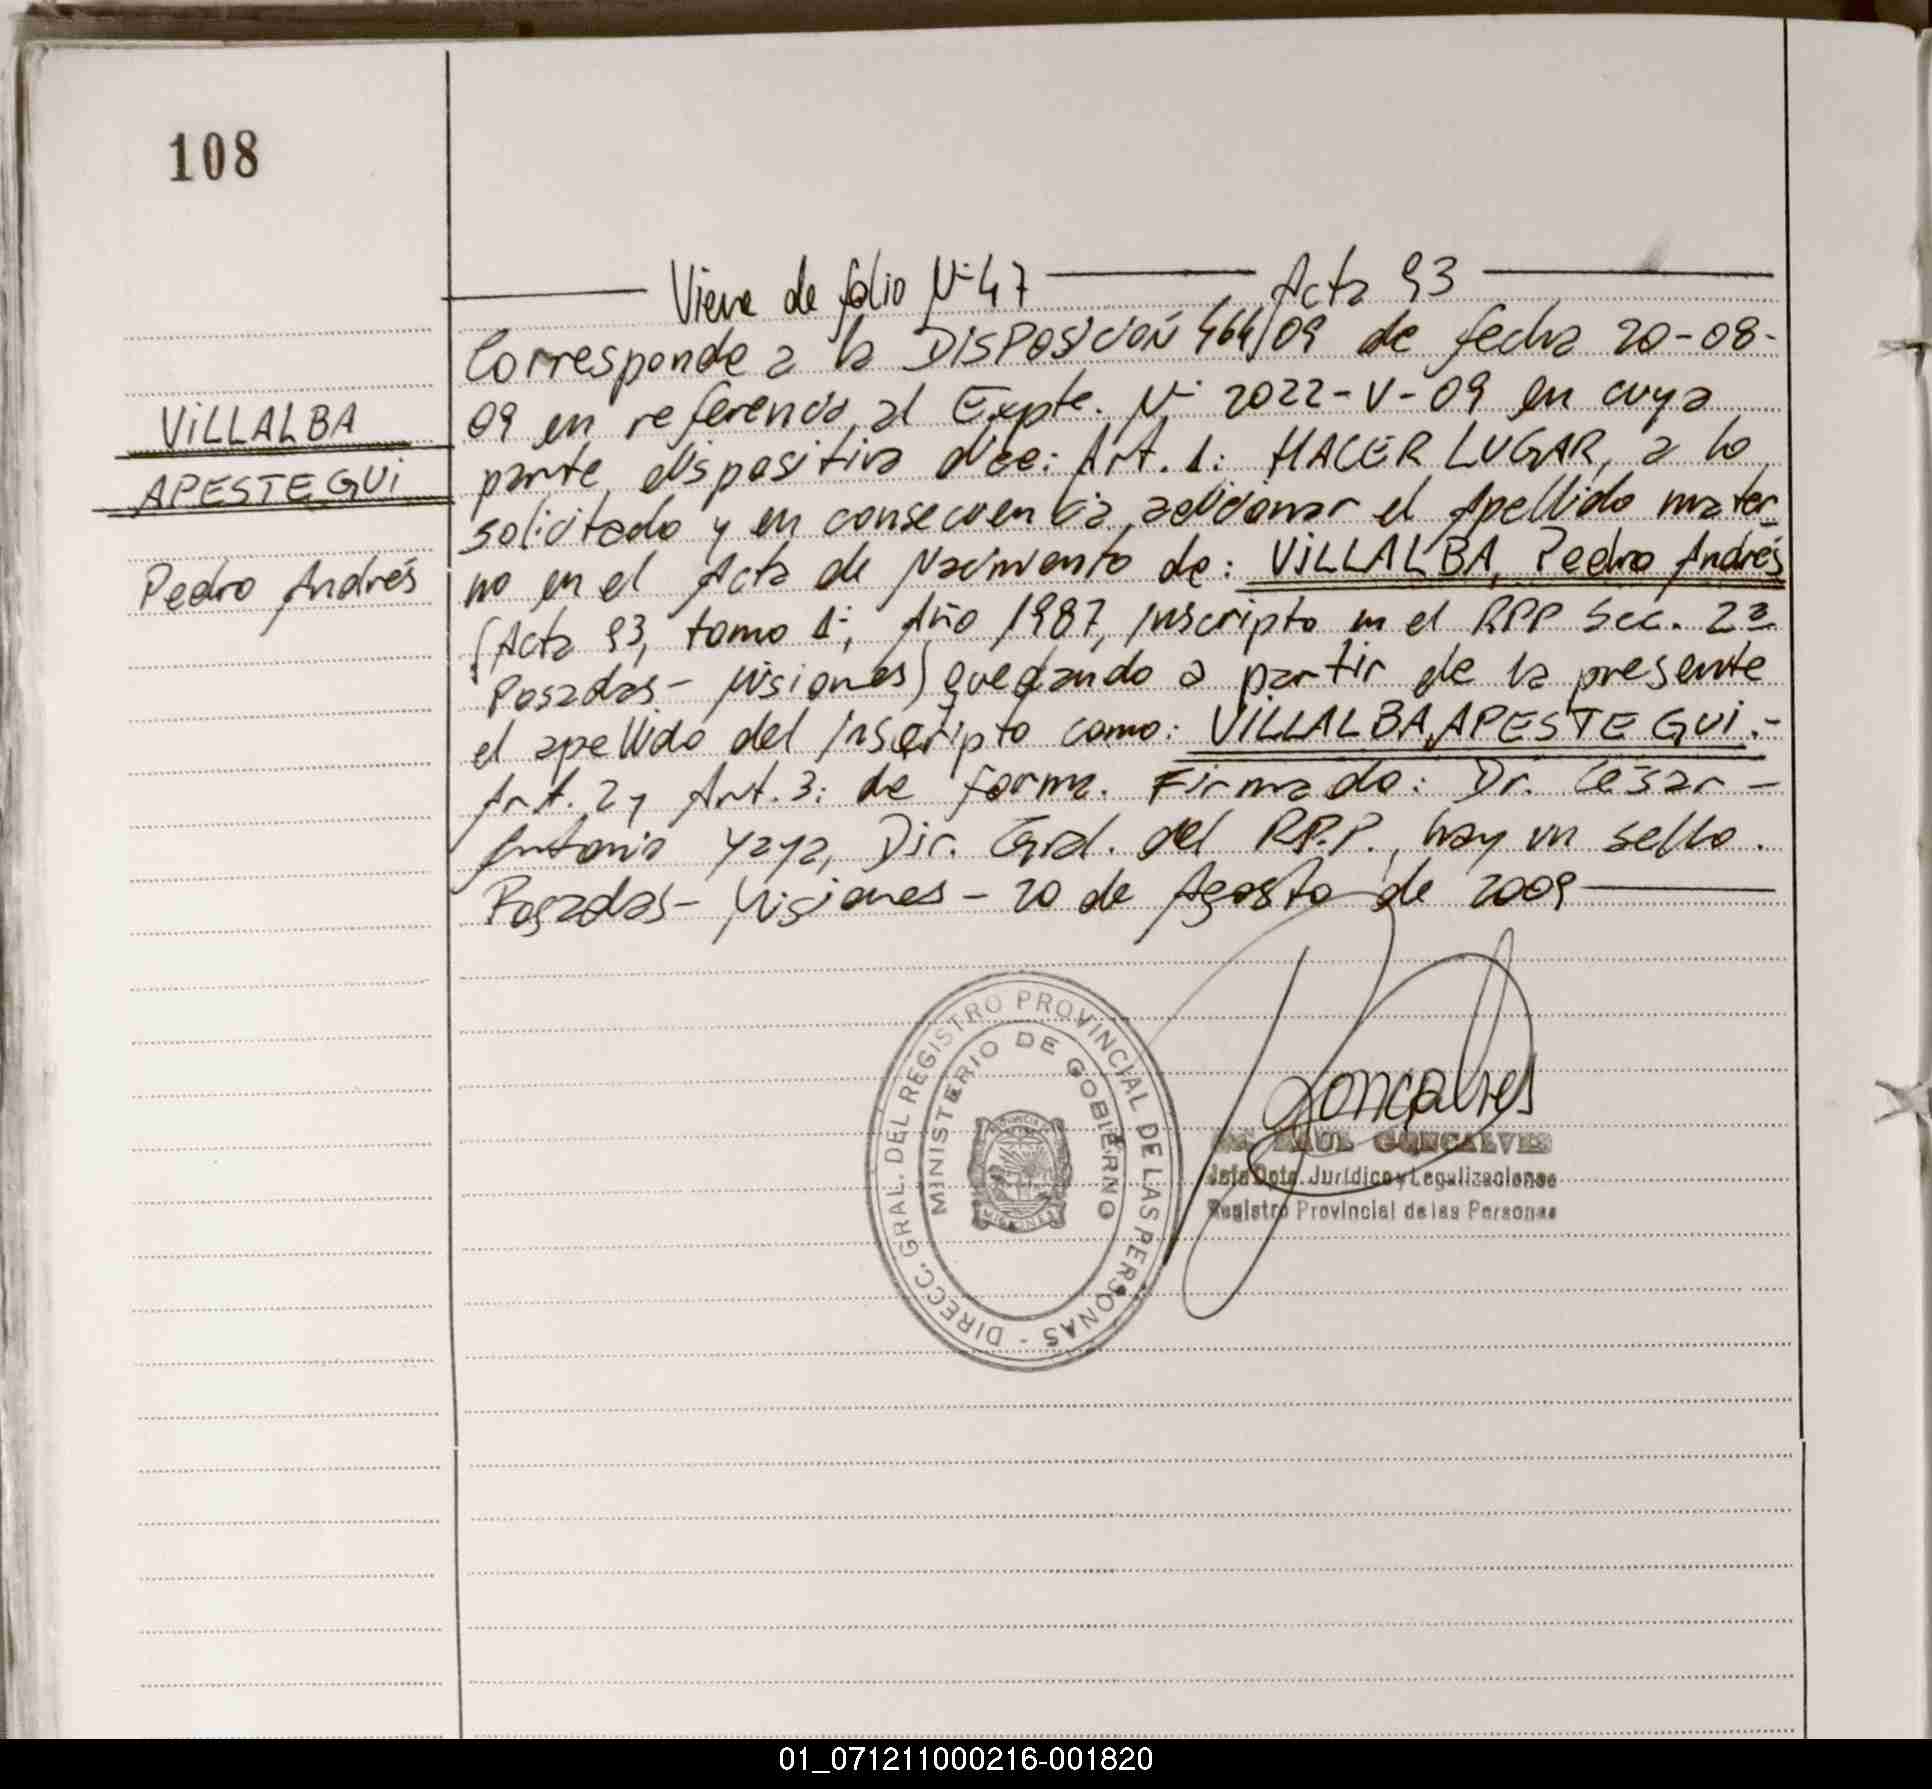 108
Viene de folio Nº 47 Acta 93
VILLALBA
APESTEGUI
Pedro Andrés
Corresponde a la DISPOSICIÓN 464/09 de fecha 20-08-
09 en referencia al Expte. Nº 2022-V-09 en cuya
parte dispositiva dice: Art. 1: HACER LUGAR, a lo
solicitado y en consecuencia, adicionar el Apellido mater
no en el Acta de Nacimiento de: VILLALBA, Pedro Andrés
(Acta 93, tomo 1º, Año 1987, Inscripto en el RPP Sec. 2ª
Posadas - Misiones) quedando a partir de la presente
el apellido del inscripto como: VILLALBA APESTEGUI.-
Art. 2 y Art. 3: de forma. Firmado: Dr. César -
Antonio Yaya, Dir. Gral. del R.P.P., hay un sello.
Posadas - Misiones - 20 de Agosto de 2009
DIRECC. GRAL. DEL REGISTRO PROVINCIAL DE LAS PERSONAS -
MINISTERIO DE GOBIERNO
MISIONES
Goncalves
RAUL GONCALVES
Jefe Dpto. Jurídico y Legalizaciones
Registro Provincial de las Personas
01_071211000216-001820